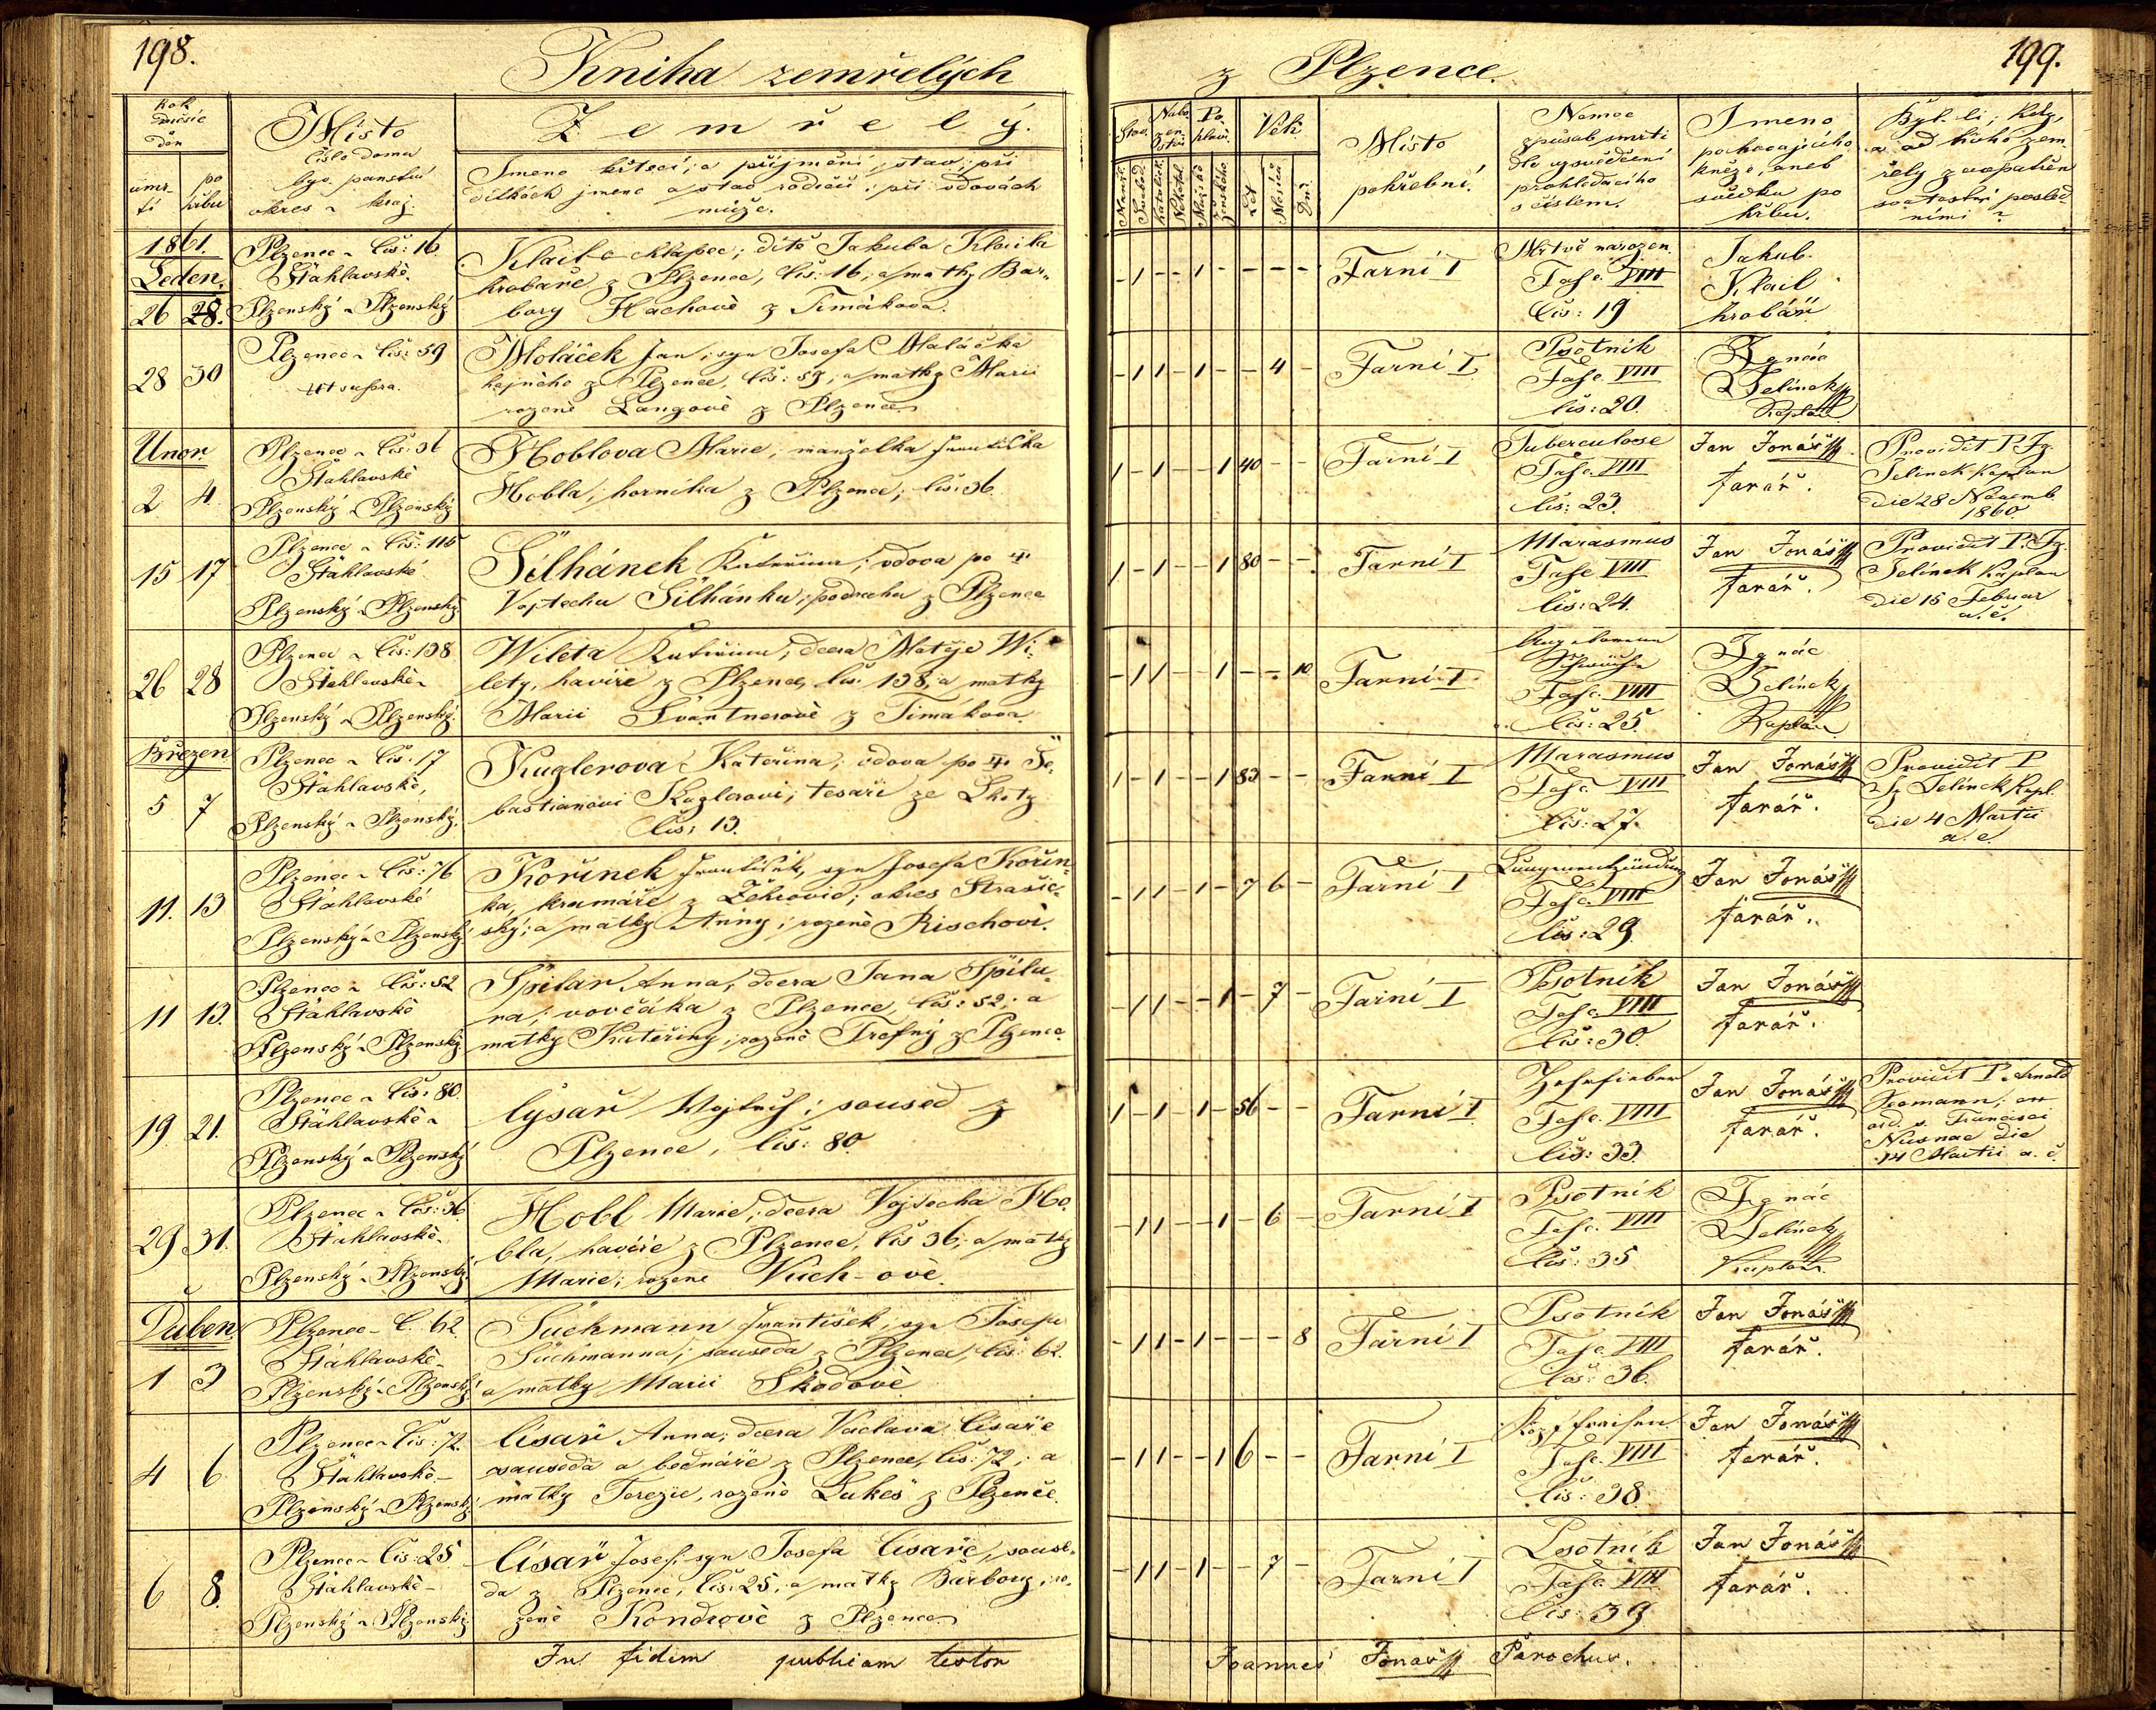 198.
Kniha zemřelých
Rok
měsíc
den
úmrtí
po
hřbu
Místo
číslo domu
byv. panství
okres a kraj
Zemřelý.
Jmeno křtecí; a přijmení; stav; při
dítkách jmeno a stav rodičů; při vdovách
muže.
1861.
Leden.
26 28.
Plzenec čís: 16
Šťáhlavské
Plzenský Plzenský
Klail chlapec; dítě Jakuba Klaila
hrobaře z Plzence, čís: 16; a matky Bar-
bory Hachově z Timákova.
28 30
Plzenec čís: 59
ut supra.
Moláček Jan; syn Josefa Maláčka
hajného z Plzence, čís: 59; a matky Marii
rozené Langově z Plzence
Unor
2 4
Plzenec čís: 36
Šťáhlavské
Plzenský Plzenský
Hoblova Marie; manželka Františka
Hobla; horníka z Plzence; čís: 36
15 17
Plzenec čís: 115
Šťáhlavské
Plzenský Plzenský
Šilhánek Kateřina; vdova po
Vojtechu Šilhánku; podruhu z Plzence
26 28
Plzenec čís: 138
Šťáhlavské
Plzenský Plzenský
Wiléta Kateřina; dcera Matěje Wi-
léty, havíře z Plzence, čís. 138, a matky
Marii Švantnerově z Timákova
Březen
5 7
Plzenec čís: 17
Šťáhlavské,
Plzenský Plzenský.
Kuglerova Kateřina; vdova po Še-
bastianovi Kuglerovi; tesaři ze Lhoty
čís: 13.
11. 13
Plzenec čís: 76
Šťáhlavské
Plzenský Plzenský
Kořínek František, syn Josefa Kořín-
ka, kramáře z okres Strašic-
ský; a matky Anny; rozené Rischovi.
11 13.
Plzenec čís: 52
Šťáhlavské
Plzenský Plzenský
Špilar Anna; dcera Jana Špila-
ra; vovčáka z Plzence, čís: 52; a
matky Kateřiny; rozené Trefný z Plzence
19. 21.
Plzenec čís: 80.
Šťáhlavské
Plzenský Plzenský
Císař Wojtěch; soused z
Plzence, čís: 80.
29 31.
Plzenec čís: 36.
Šťáhlavské
Plzenský Plzenský
Hobl Marie; dcera Vojtecha Ho-
bla, havíře z Plzence, čís 36; a matky
Marie; rozené Vuch-ově.
Duben
1 3
Plzenec č. 62
Šťáhlavské
Plzenský Plzenský
Suchmann František, syn Josefa
Suchmanna; souseda z Plzence, čís: 62.
a matky Marii Škodově
4 6
Plzenec čís: 72.
Šťáhlavské
Plzenský Plzenský
Císař Anna; dcera Vaclava Císaře
souseda a bednáře z Plzence, čís: 72; a
matky Terezie, rozené Lukeš z Plzence.
6 8.
Plzenec čís: 25
Šťáhlavské
Plzenský Plzenský
Císař Josef; syn Josefa Císaře, souse-
da z Plzence, čís: 25, a matky Barbory; ro-
zené Kondrově z Plzence
In fidem publicam testor
z Plzence.
199.
Stav.
Nabo-
žen-
ství
Po-
hlaví.
Věk
Ženat.
Svobod.
Katolick.
Nekatol.
Mužské
Ženského
Let
Měsíců
Dní
Místo
pohřební.
Nemoc
způsob smrti
dle vysvědčení
prohledacího
s číslem.
Jmeno
pochovajícího
kněze, aneb
svědka po
hřbu.
Byl-li; kdy,
a od koho zem-
řelý zaopatřen
svatostmi posled-
ními?
- 1 - - 1 - - - -
Farní I
Mrtvě narozen.
Fasc. VIII
Čís: 19
Jakub
Klail
hrobář.
- 1 1 - 1 - - 4 -
Farní I
Psotník
Fasc. VIII
čís: 20.
Ignác
Jelínek
Kaplan
1 - 1 - - 1 40 - -
Farní I
Tuberculose
Fasc. VIII
čís: 23.
Jan Jonáš
farář.
Providit P. Ig.
Jelínek Kaplan
die 28 Novemb.
1860.
1 - 1 - - 1 80 - -
Farní I
Marasmus
Fasc VIII
čís: 24.
Jan Jonáš
farář.
Providit P. Ig.
Jelínek Kaplan
die 15 Februar
a. c.
- 1 1 - 1 - - - 10
Farní I
Angeborene
Schwäche
Fasc. VIII
čís: 25
Ignác
Jelínek
Kaplan
1 - 1 - - 1 83 - -
Farní I
Marasmus
Fasc VIII
čís: 27.
Jan Jonáš
farář.
Providit P
Ig Jelínek Kapl.
die 4 Martii
a. c.
- 1 1 - 1 - 7 6 -
Farní I
Lungenentzündung
Fasc. VIII
čís: 29.
Jan Jonáš
farář.
- 1 1 - - 1 - 7 -
Farní I
Psotník
Fasc. VIII
čís: 30.
Jan Jonáš
farář.
1 - 1 - 1 - 56 - -
Farní I
Zehrfieber
Fasc. VIII
čís: 33.
Jan Jonáš
farář.
Providit P. Arnold
ord. s. Francisci
die
14 Martii a. c.
- 1 1 - - 1 - 6 -
Farní I
Psotník
Fasc. VIII
čís: 35
Ignác
Jelínek
Kaplan.
- 1 1 - 1 - - - 8
Farní I
Psotník
Fasc. VIII
čís: 36.
Jan Jonáš
farář.
- 1 1 - - 1 6 - -
Farní I
Fasc. VIII
čís: 38
Jan Jonáš
farář.
- 1 1 - 1 - - 7 -
Farní I
Psotník
Fasc. VIII.
čís: 39
Jan Jonáš
farář.
Joannes Jonáš Parochus.